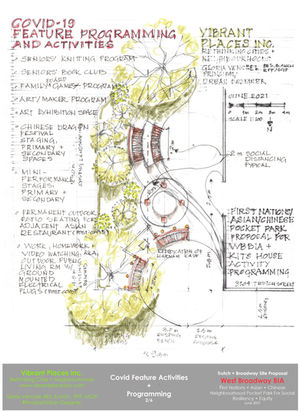 COVID-19
FEATURE PROGRAMMING
AND ACTIVITIES
SENIORS' KNITTING PROGRAM
SENIORS' BOOK CLUB
FAMILY GAMES PROGRAM
ART/MAKER PROGRAM
ART EXHIBITION SPACE
CHINESE DRAGON
FESTIVAL
STAGING,
PRIMARY +
SECONDARY
SPACES
MINI-
PERFORMANCE
STAGES:
PRIMARY +
SECONDARY
PERMANENT OUTDOOR
PATIO SEATING FOR
ADJACENT ASIAN
RESTAURANT
WORK, HOMEWORK +
VIDEO WATCHING: AKA
OUTDOOR PUBLIC
LIVING RM W/
GROUND
MOUNTED
ELECTRICAL
PLUGS
VIBRANT
PLACES INC.
RETHINKING CITIES +
NEIGHBOURHOODS
GLORIA VENCZEL
PRINCIPAL
URBAN PROMETRA
JUNE 2021
SCALE 1:100
2 M SOCIAL
DISTANCING
TYPICAL
FIRST NATIONS
ASIAN/CHINESE
POCKET PARK
PROPOSAL FOR
WBBIA +
KITS HOUSE
ACTIVITY
PROGRAMMING
Vibrant Places Inc
Covid Feature Activities
+
Programming
2/4
Dutch + Broadway Site Proposal
West Broadway BIA
First Nations + Asian + Chinese
Neighbourhood Pocket Park For Social
Resilience + Equity
June 2021